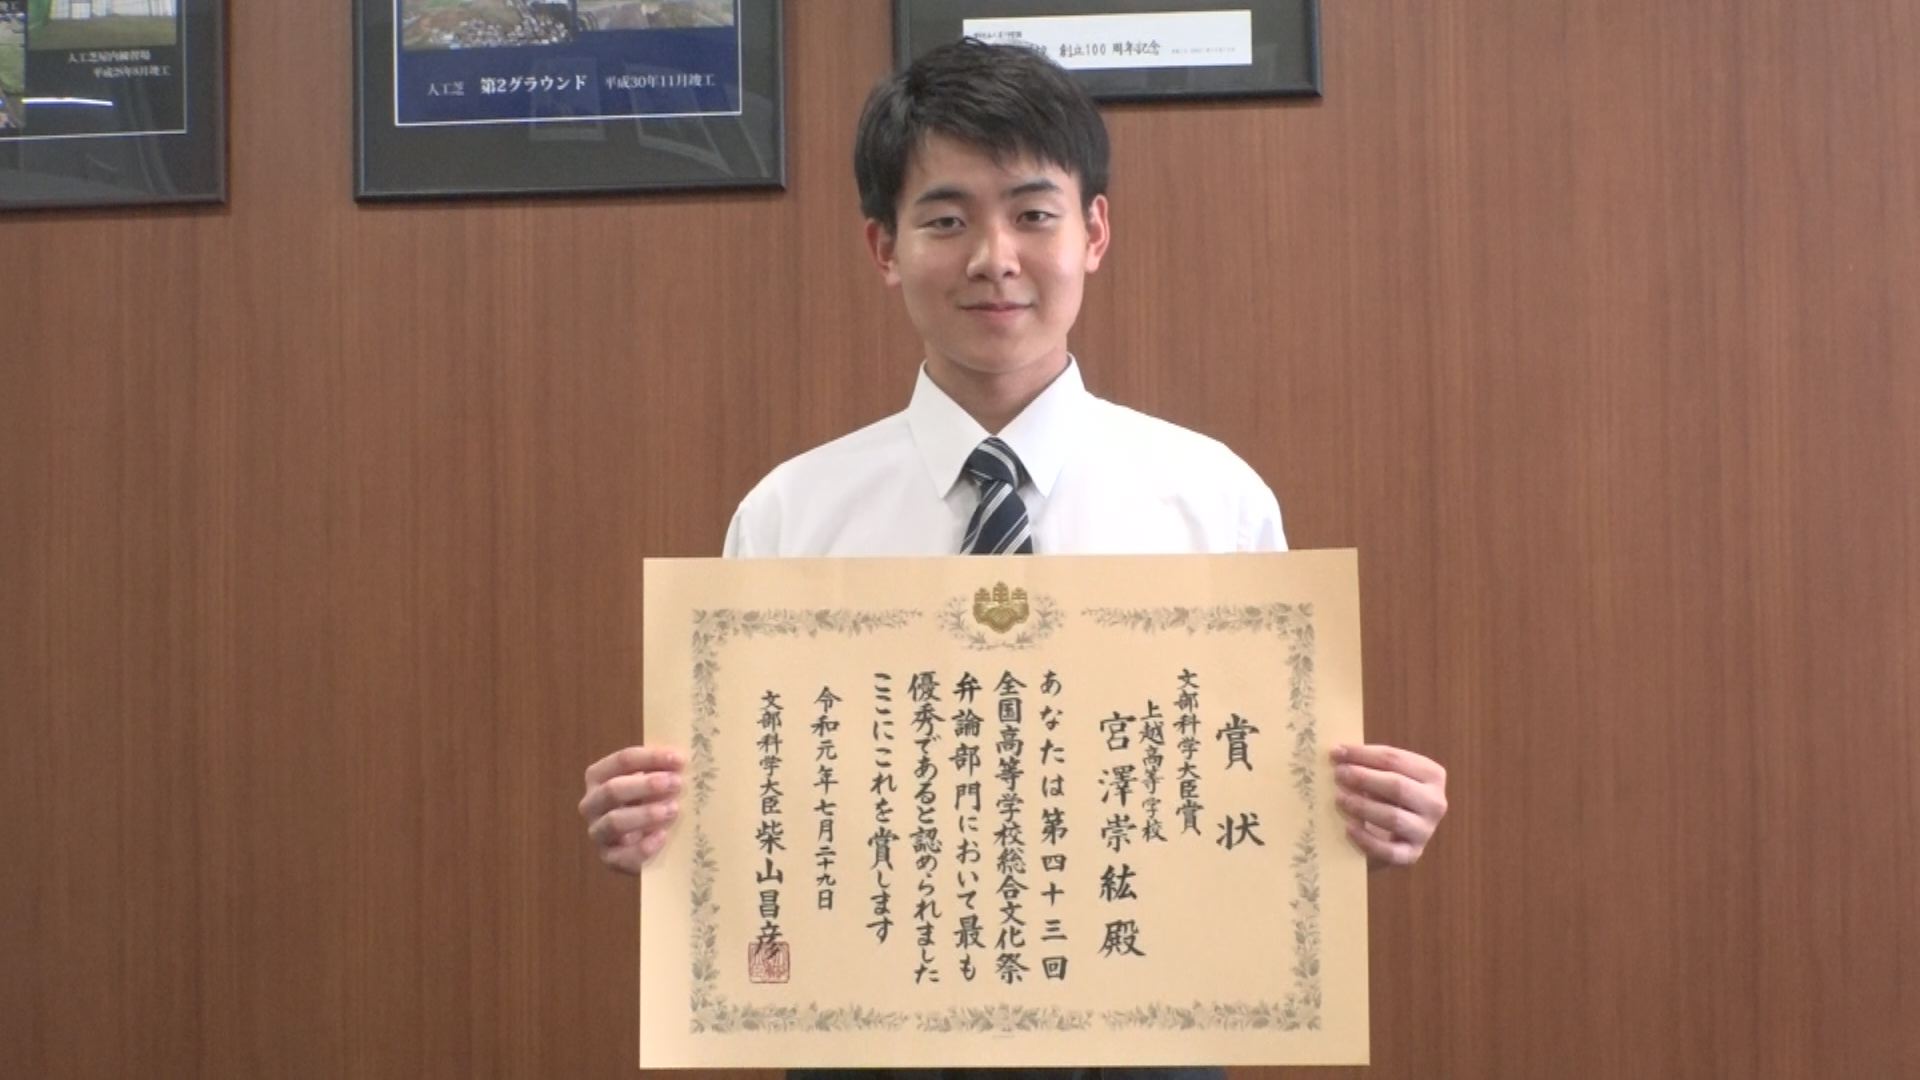 人工芝屋内練習場
平成28年8月竣工
人工芝 第2グラウンド 平成30年11月竣工
創立100周年記念
賞状
文部科学大臣賞
上越高等学校
宮澤崇紘殿
あなたは第四十三回
全国高等学校総合文化祭
弁論部門において最も
優秀であると認められました
ここにこれを賞します
令和元年七月二十九日
文部科学大臣 柴山昌彦